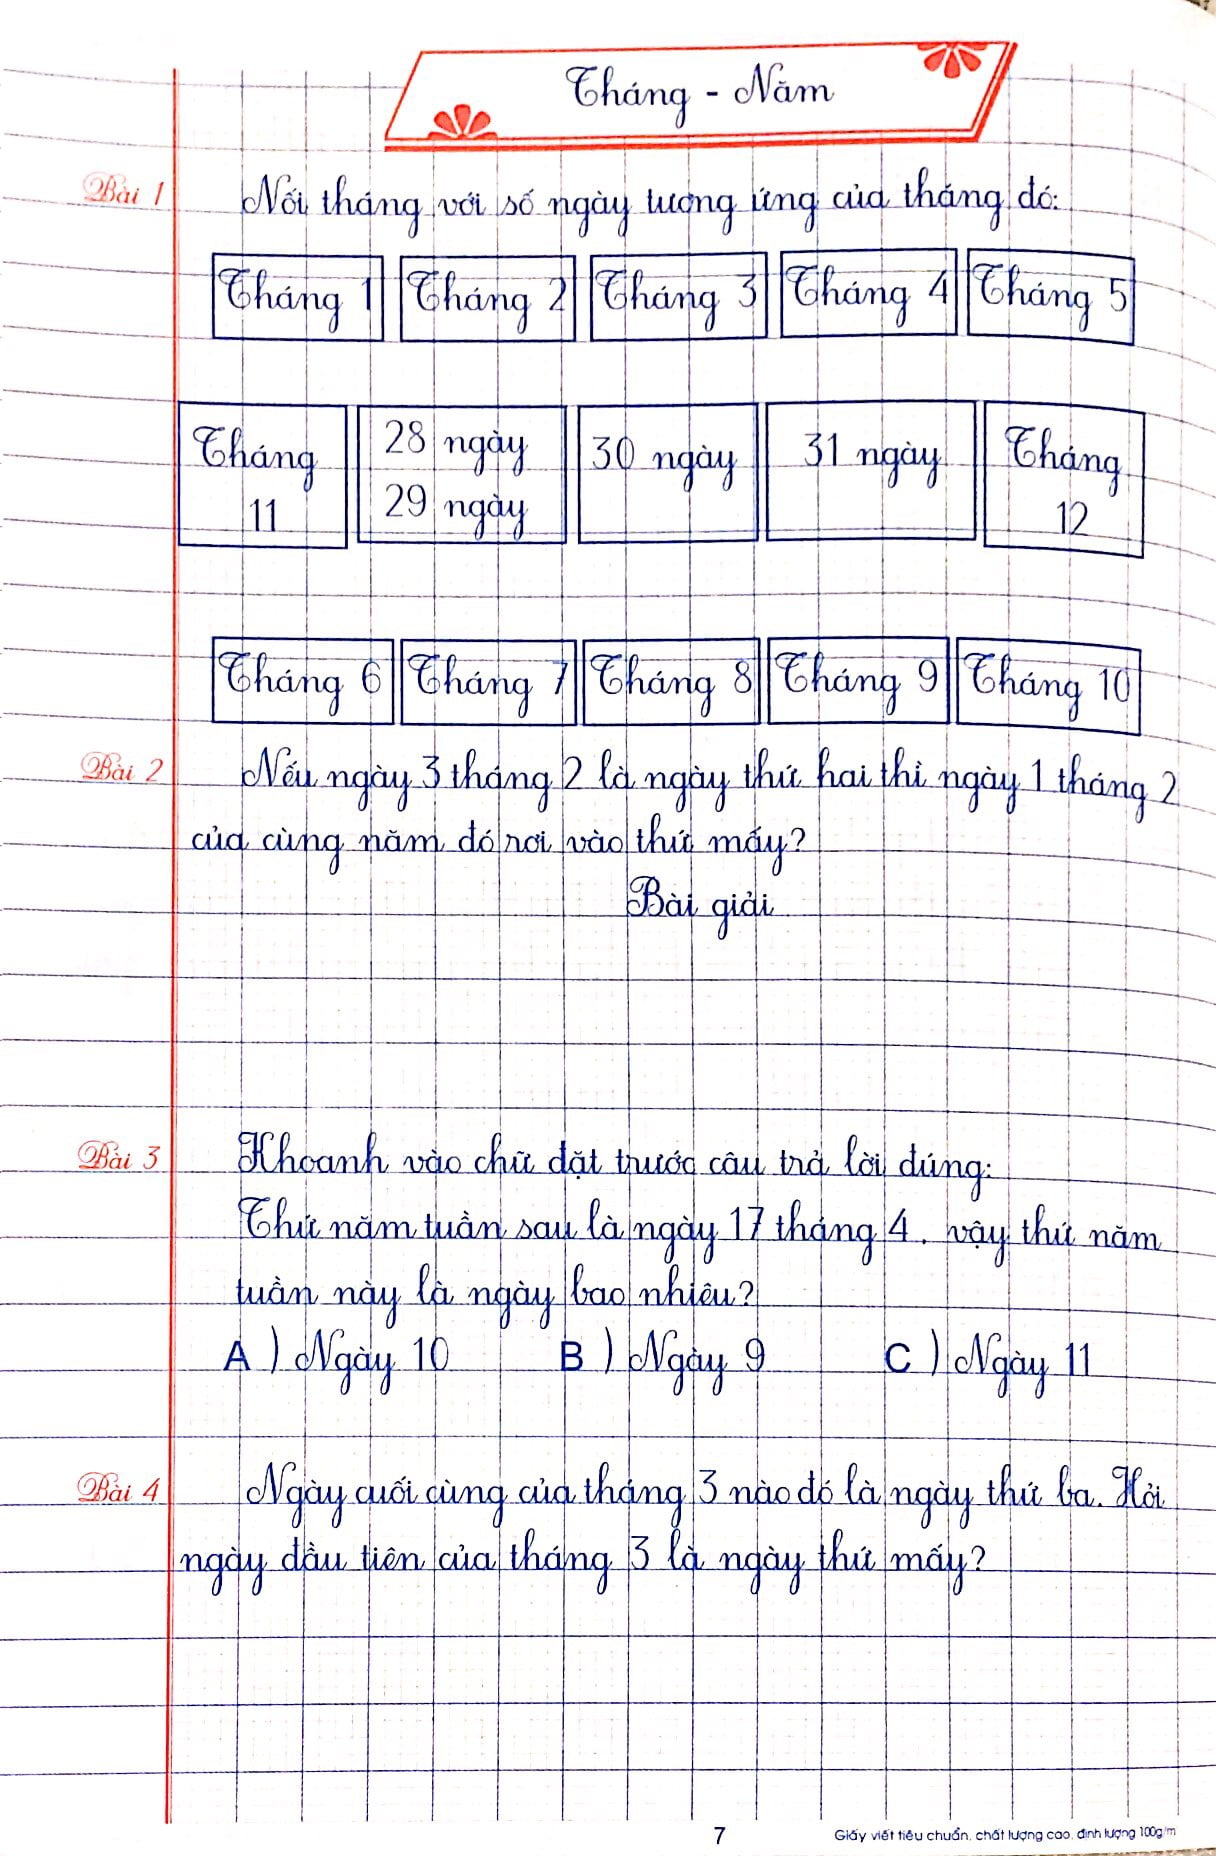 Tháng - Năm
Bài 1 Nối tháng với số ngày tương ứng của tháng đó:
Tháng 1 Tháng 2 Tháng 3 Tháng 4 Tháng 5
Tháng 11 28 ngày 29 ngày 30 ngày 31 ngày Tháng 12
Tháng 6 Tháng 7 Tháng 8 Tháng 9 Tháng 10
Bài 2 Nếu ngày 3 tháng 2 là ngày thứ hai thì ngày 1 tháng 2
của cùng năm đó rơi vào thứ mấy?
Bài giải
Bài 3 Khoanh vào chữ đặt trước câu trả lời đúng:
Thứ năm tuần sau là ngày 17 tháng 4. vậy thứ năm
tuần này là ngày bao nhiêu?
A ) Ngày 10 B ) Ngày 9 C ) Ngày 11
Bài 4 Ngày cuối cùng của tháng 3 nào đó là ngày thứ ba. Hỏi
ngày đầu tiên của tháng 3 là ngày thứ mấy?
7 Giấy viết tiêu chuẩn, chất lượng cao, định lượng 100g/m